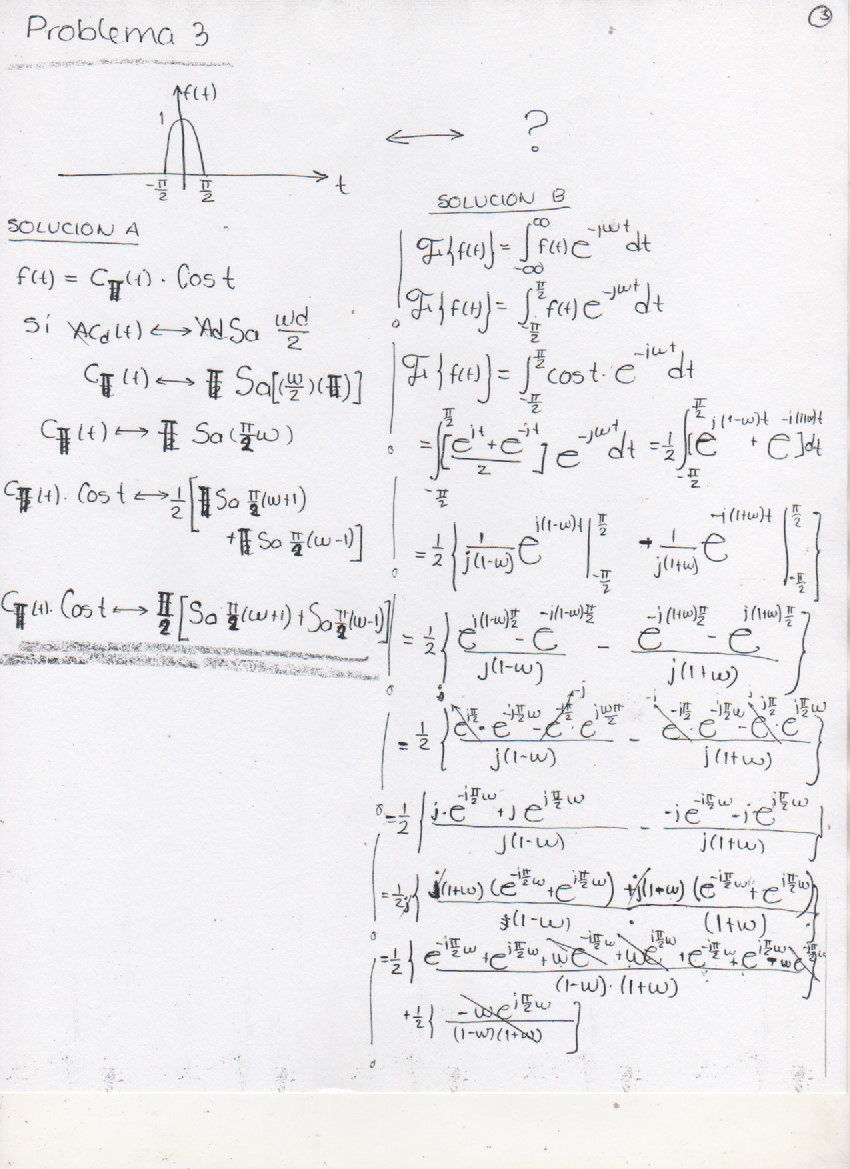 ③
Problema 3
f(t)
1
-π/2 π/2 t
⟷ ?
SOLUCION A
f(t) = C_π(t) · Cos t
Sí ACd(t) ⟷ Ad Sa ωd/2
C_π(t) ⟷ π Sa[(ω/2)(π)]
C_π(t) ⟷ π Sa(π/2 ω)
C_π(t) · Cos t ⟷ 1/2 [π Sa π/2 (ω+1)
+ π Sa π/2 (ω-1)]
C_π(t) · Cos t ⟷ π/2 [Sa π/2 (ω+1) + Sa π/2 (ω-1)]
SOLUCION B
F{f(t)} = ∫_{-∞}^{∞} f(t) e^{-jωt} dt
F{f(t)} = ∫_{-π/2}^{π/2} f(t) e^{-jωt} dt
F{f(t)} = ∫_{-π/2}^{π/2} cos t · e^{-jωt} dt
= ∫_{-π/2}^{π/2} [(e^{jt} + e^{-jt})/2] e^{-jωt} dt = 1/2 ∫_{-π/2}^{π/2} [e^{j(1-ω)t} + e^{-j(1+ω)t}] dt
= 1/2 { 1/(j(1-ω)) e^{j(1-ω)t} |_{-π/2}^{π/2} + 1/(j(1+ω)) e^{-j(1+ω)t} |_{-π/2}^{π/2} }
= 1/2 { (e^{j(1-ω)π/2} - e^{-j(1-ω)π/2})/(j(1-ω)) - (e^{-j(1+ω)π/2} - e^{j(1+ω)π/2})/(j(1+ω)) }
j -j -j j
= 1/2 { (e^{jπ/2} · e^{-jπ/2 ω} - e^{-jπ/2} · e^{jωπ/2})/(j(1-ω)) - (e^{-jπ/2} · e^{-jπ/2 ω} - e^{jπ/2} · e^{jπ/2 ω})/(j(1+ω)) }
= 1/2 { (j · e^{-jπ/2 ω} + j e^{jπ/2 ω})/(j(1-ω)) - (-j e^{-jπ/2 ω} - j e^{jπ/2 ω})/(j(1+ω)) }
= 1/2j { j(1+ω)(e^{-jπ/2 ω} + e^{jπ/2 ω}) + j(1+ω)(e^{-jπ/2 ω} + e^{jπ/2 ω}) }
(1-ω) (1+ω)
= 1/2 { (e^{-jπ/2 ω} + e^{jπ/2 ω} + ωe^{-jπ/2 ω} + ωe^{jπ/2 ω} + e^{-jπ/2 ω} + e^{jπ/2 ω} - ωe^{-jπ/2 ω})/((1-ω)·(1+ω)) }
+ 1/2 { (-ωe^{jπ/2 ω})/((1-ω)(1+ω)) }